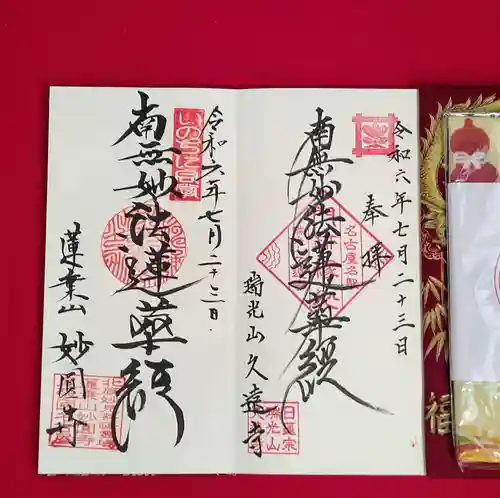 令和六年七月二十三日
奉拝
南無妙法蓮華経
瑞光山久遠寺
日蓮宗
瑞光山
令和六年七月二十三日
いのちに合掌
南無妙法蓮華経
蓮葉山 妙圓寺
福